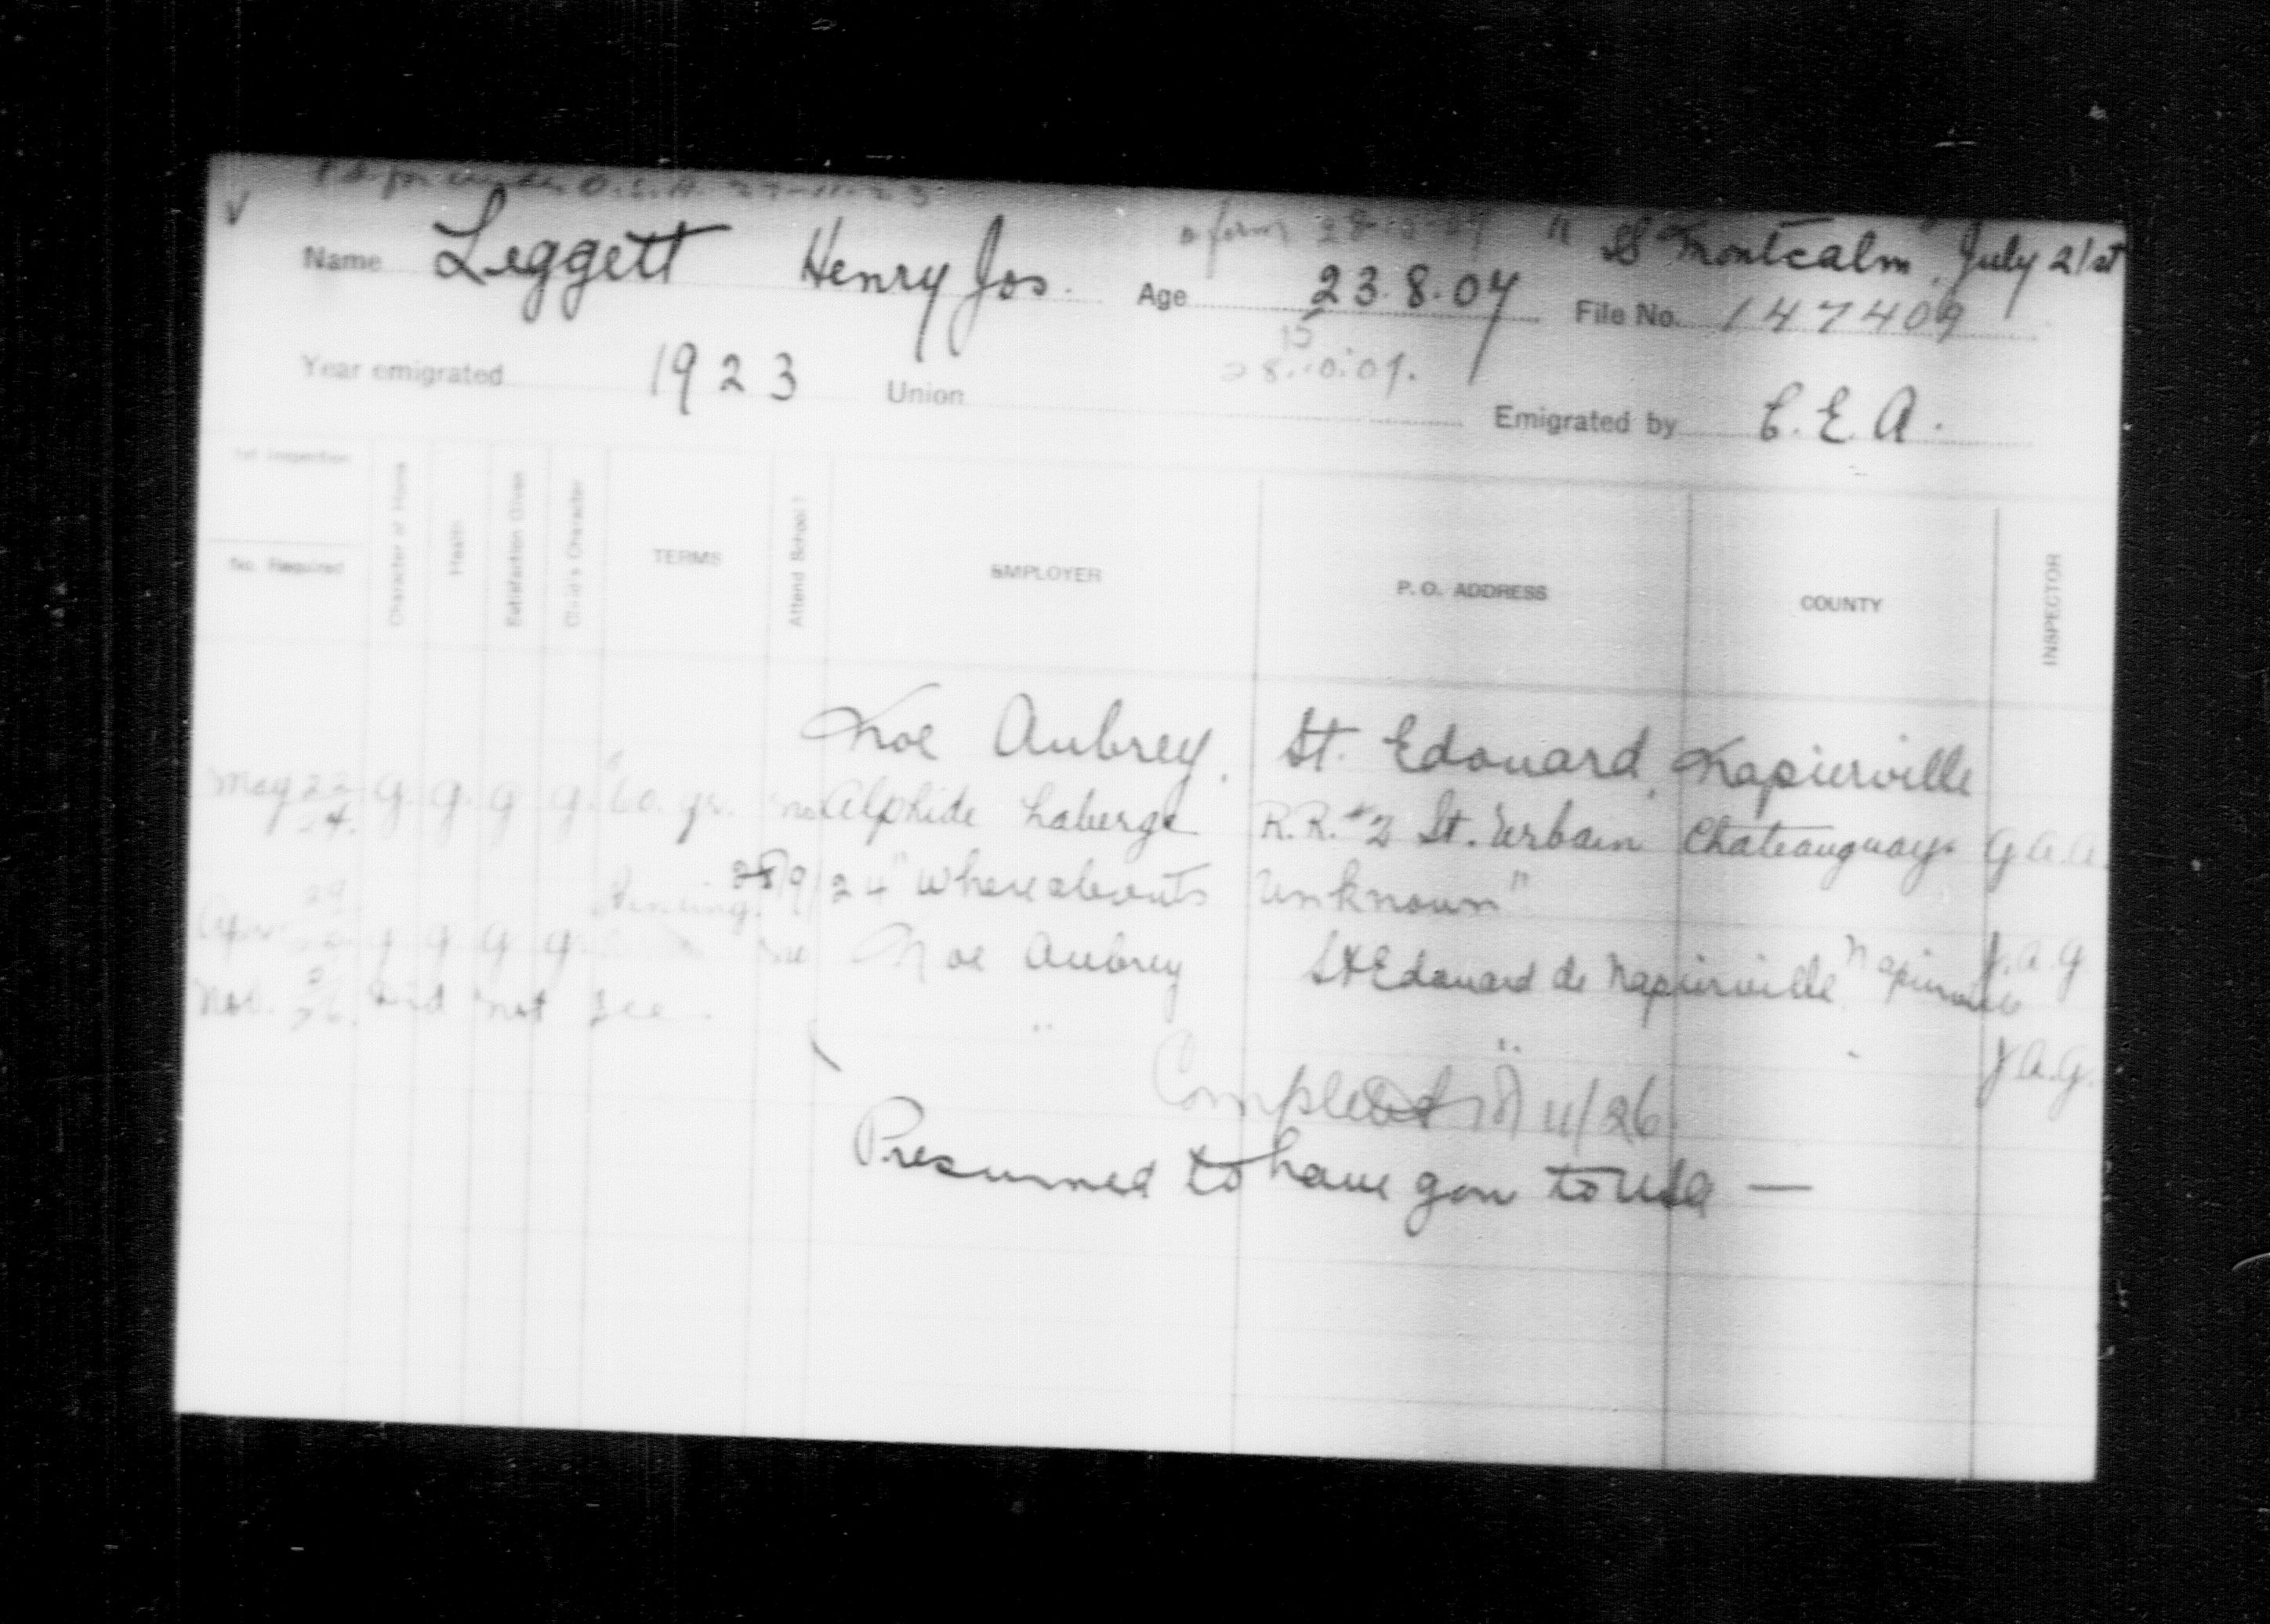 27-11-23
"SS Montcalm" July 21st
Name Leggett Henry Jos. Age 23.8.07 File No. 147409
15
Year emigrated 1923 Union Emigrated by C.E.A.
1st Inspection
No. Required Character of Home Health Satisfaction Given Child's Character TERMS Attend School? EMPLOYER P. O. ADDRESS COUNTY INSPECTOR
Noe Aubrey, St. Edouard, Napierville
May 22 24. g. g. g g. no Alphide Laberge R.R. #2 St. Urbain Chateauguay G.A.A.
24 "Whereabouts Unknown"
g g g g. Noe Aubrey St Edouard de Napierville Napierville J.A.G
Nov. 26. Did not see. " " " J.A.G.
Completed 11/26
Presumed to have gone to USA —